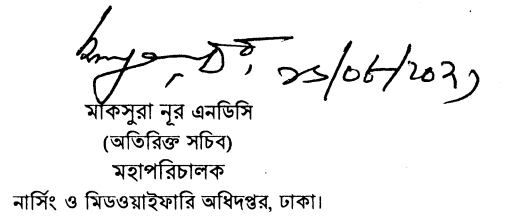 মাকসুরা নূর এনডিসি
(অতিরিক্ত সচিব)
মহাপরিচালক
নার্সিং ও মিডওয়াইফারি অধিদপ্তর, ঢাকা।